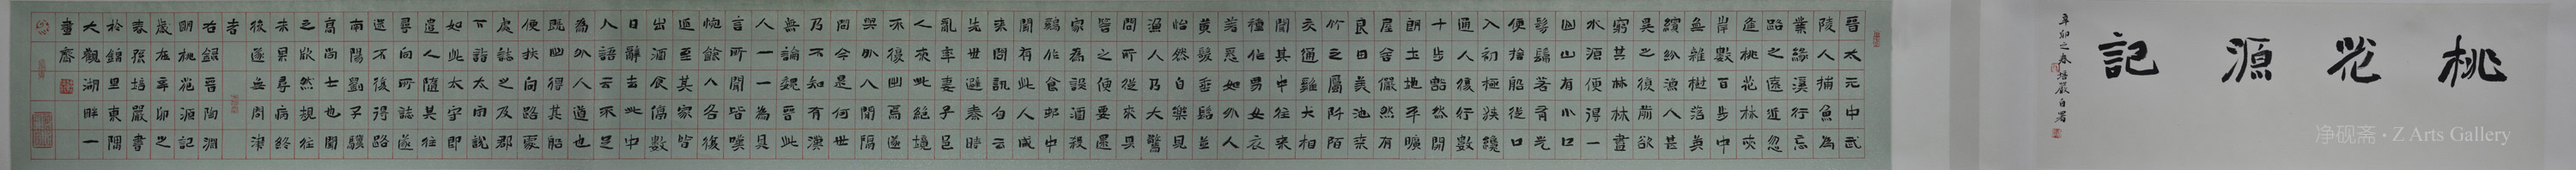 桃花源記
辛卯之春培嚴自署
晉太元中武
陵人捕魚為
業緣溪行忘
路之遠近忽
逢桃花林夾
岸數百步中
無雜樹落英
繽紛漁人甚
異之復前欲
窮其林林盡
水源便得一
山山有小口
髣髴若有光
便捨船從口
入初極狹纔
通人復行數
十步豁然開
朗土地平曠
屋舍儼然有
良田美池桑
竹之屬阡陌
交通雞犬相
聞其中往來
種作男女衣
著悉如外人
黃髮垂髫並
怡然自樂見
漁人乃大驚
問所從來具
答之便要還
家為設酒殺
鷄作食邨中
聞有此人咸
來問訊自云
先世避秦時
亂率妻子邑
人來此絕境
不復出焉遂
與外人間隔
問今是何世
乃不知有漢
無論魏晉此
人一一為具
言所聞皆嘆
惋餘人各復
延至其家皆
出酒食停數
日辭去此中
人語云不足
為外人道也
既出得其船
便扶向路處
處誌之及郡
下詣太守說
如此太守即
遣人隨其往
尋向所誌遂
迷不復得路
南陽劉子驥
高尚士也聞
之欣然規往
未果尋病終
後遂無問津
者
右錄晉陶淵
明桃花源記
歲在辛卯之
春張培嚴書
於錦里東隅
大觀湖畔一
畫齋
净砚斋·Z Arts Gallery